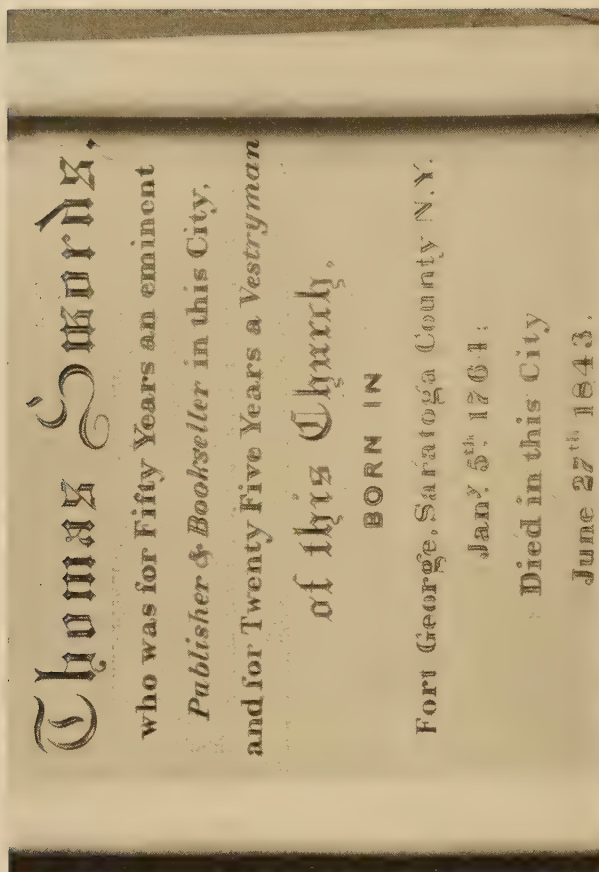 Thomas Swords,
who was for Fifty Years an eminent
Publisher & Bookseller in this City,
and for Twenty Five Years a Vestryman
of this Church,
BORN IN
Fort George, Saratoga County N.Y.
Jany. 5th. 1764;
Died in this City
June 27th 1843.